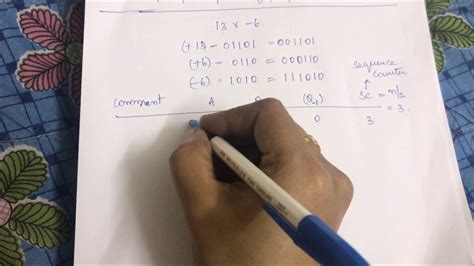 13 x -6.
(+13 - 01101 = 001101
(+6) - 0110 = 000110
(-6) = 1010 = 111010
sequence counter
↑
comment A Q (Q₁) SC = n/2
0 3 = 3.